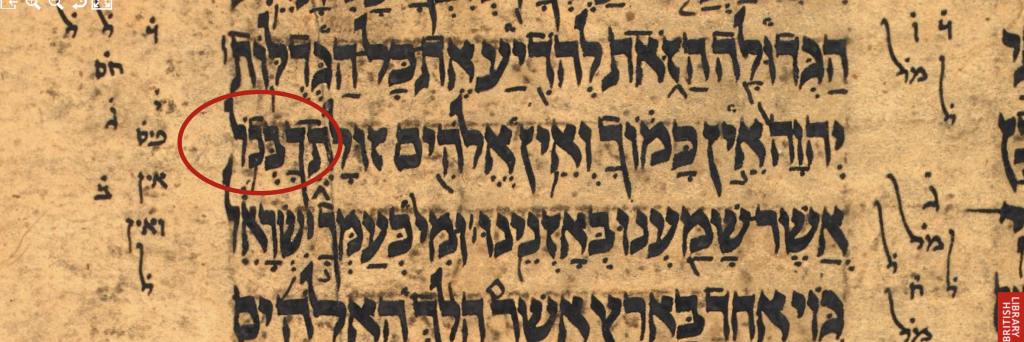 הַגְּדוּלָּה הַזֹּאת לְהֹדִיעַ אֶת כָּל הַגְּדֻלּוֹת
יְהוָה אֵין כָּמוֹךָ וְאֵין אֱלֹהִים זוּלָתֶךָ בְּכֹל
אֲשֶׁר שָׁמַעְנוּ בְּאָזְנֵינוּ וּמִי כְּעַמְּךָ יִשְׂרָאֵל
גּוֹי אֶחָד בָּאָרֶץ אֲשֶׁר הָלַךְ הָאֱלֹהִים
מל
ל
ג
מל
ל
מל
חס
ג
אין
ב
ואין
ל
BRITISH
LIBRARY